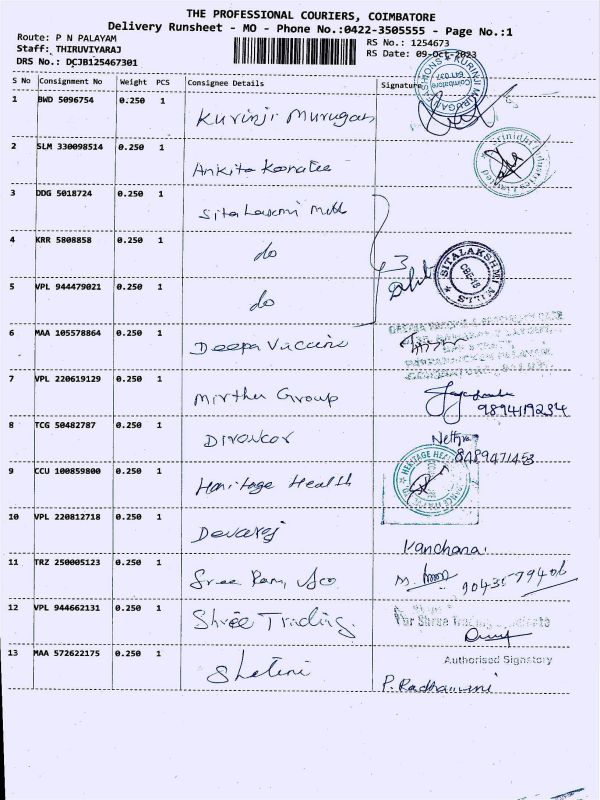 THE PROFESSIONAL COURIERS, COIMBATORE
Delivery Runsheet - MO - Phone No.:0422-3505555 - Page No.:1
Route: P N PALAYAM
RS No.: 1254673
Staff: THIRUVIYARAJ
RS Date: 09-Oct-2023
DRS No.: DCJB125467301
S No Consignment No Weight PCS Consignee Details Signature
1 BWD 5096754 0.250 1 Kurinji Murugan
KURINJI MURUGAN FASHIONS Coimbatore
2 SLM 330098514 0.250 1 Ankita
3 DDG 5018724 0.250 1 Sitalaxmi Mill
4 KRR 5808858 0.250 1 do
3
SITALAKSHMI MILLS
5 VPL 944479021 0.250 1 do
6 MAA 105578864 0.250 1 Deepa Vaccine
7 VPL 220619129 0.250 1 Mirthu Group
9894119234
8 TCG 50482787 0.250 1
8489471453
9 CCU 100859800 0.250 1 Haritage Health
HERITAGE HEALTH
10 VPL 220812718 0.250 1 Devaraj
Kanchana
11 TRZ 250005123 0.250 1 Sree Ram
9043579406
12 VPL 944662131 0.250 1 Shree Trading
For Shree Trading
Authorised Signatory
13 MAA 572622175 0.250 1
P. Radhamani